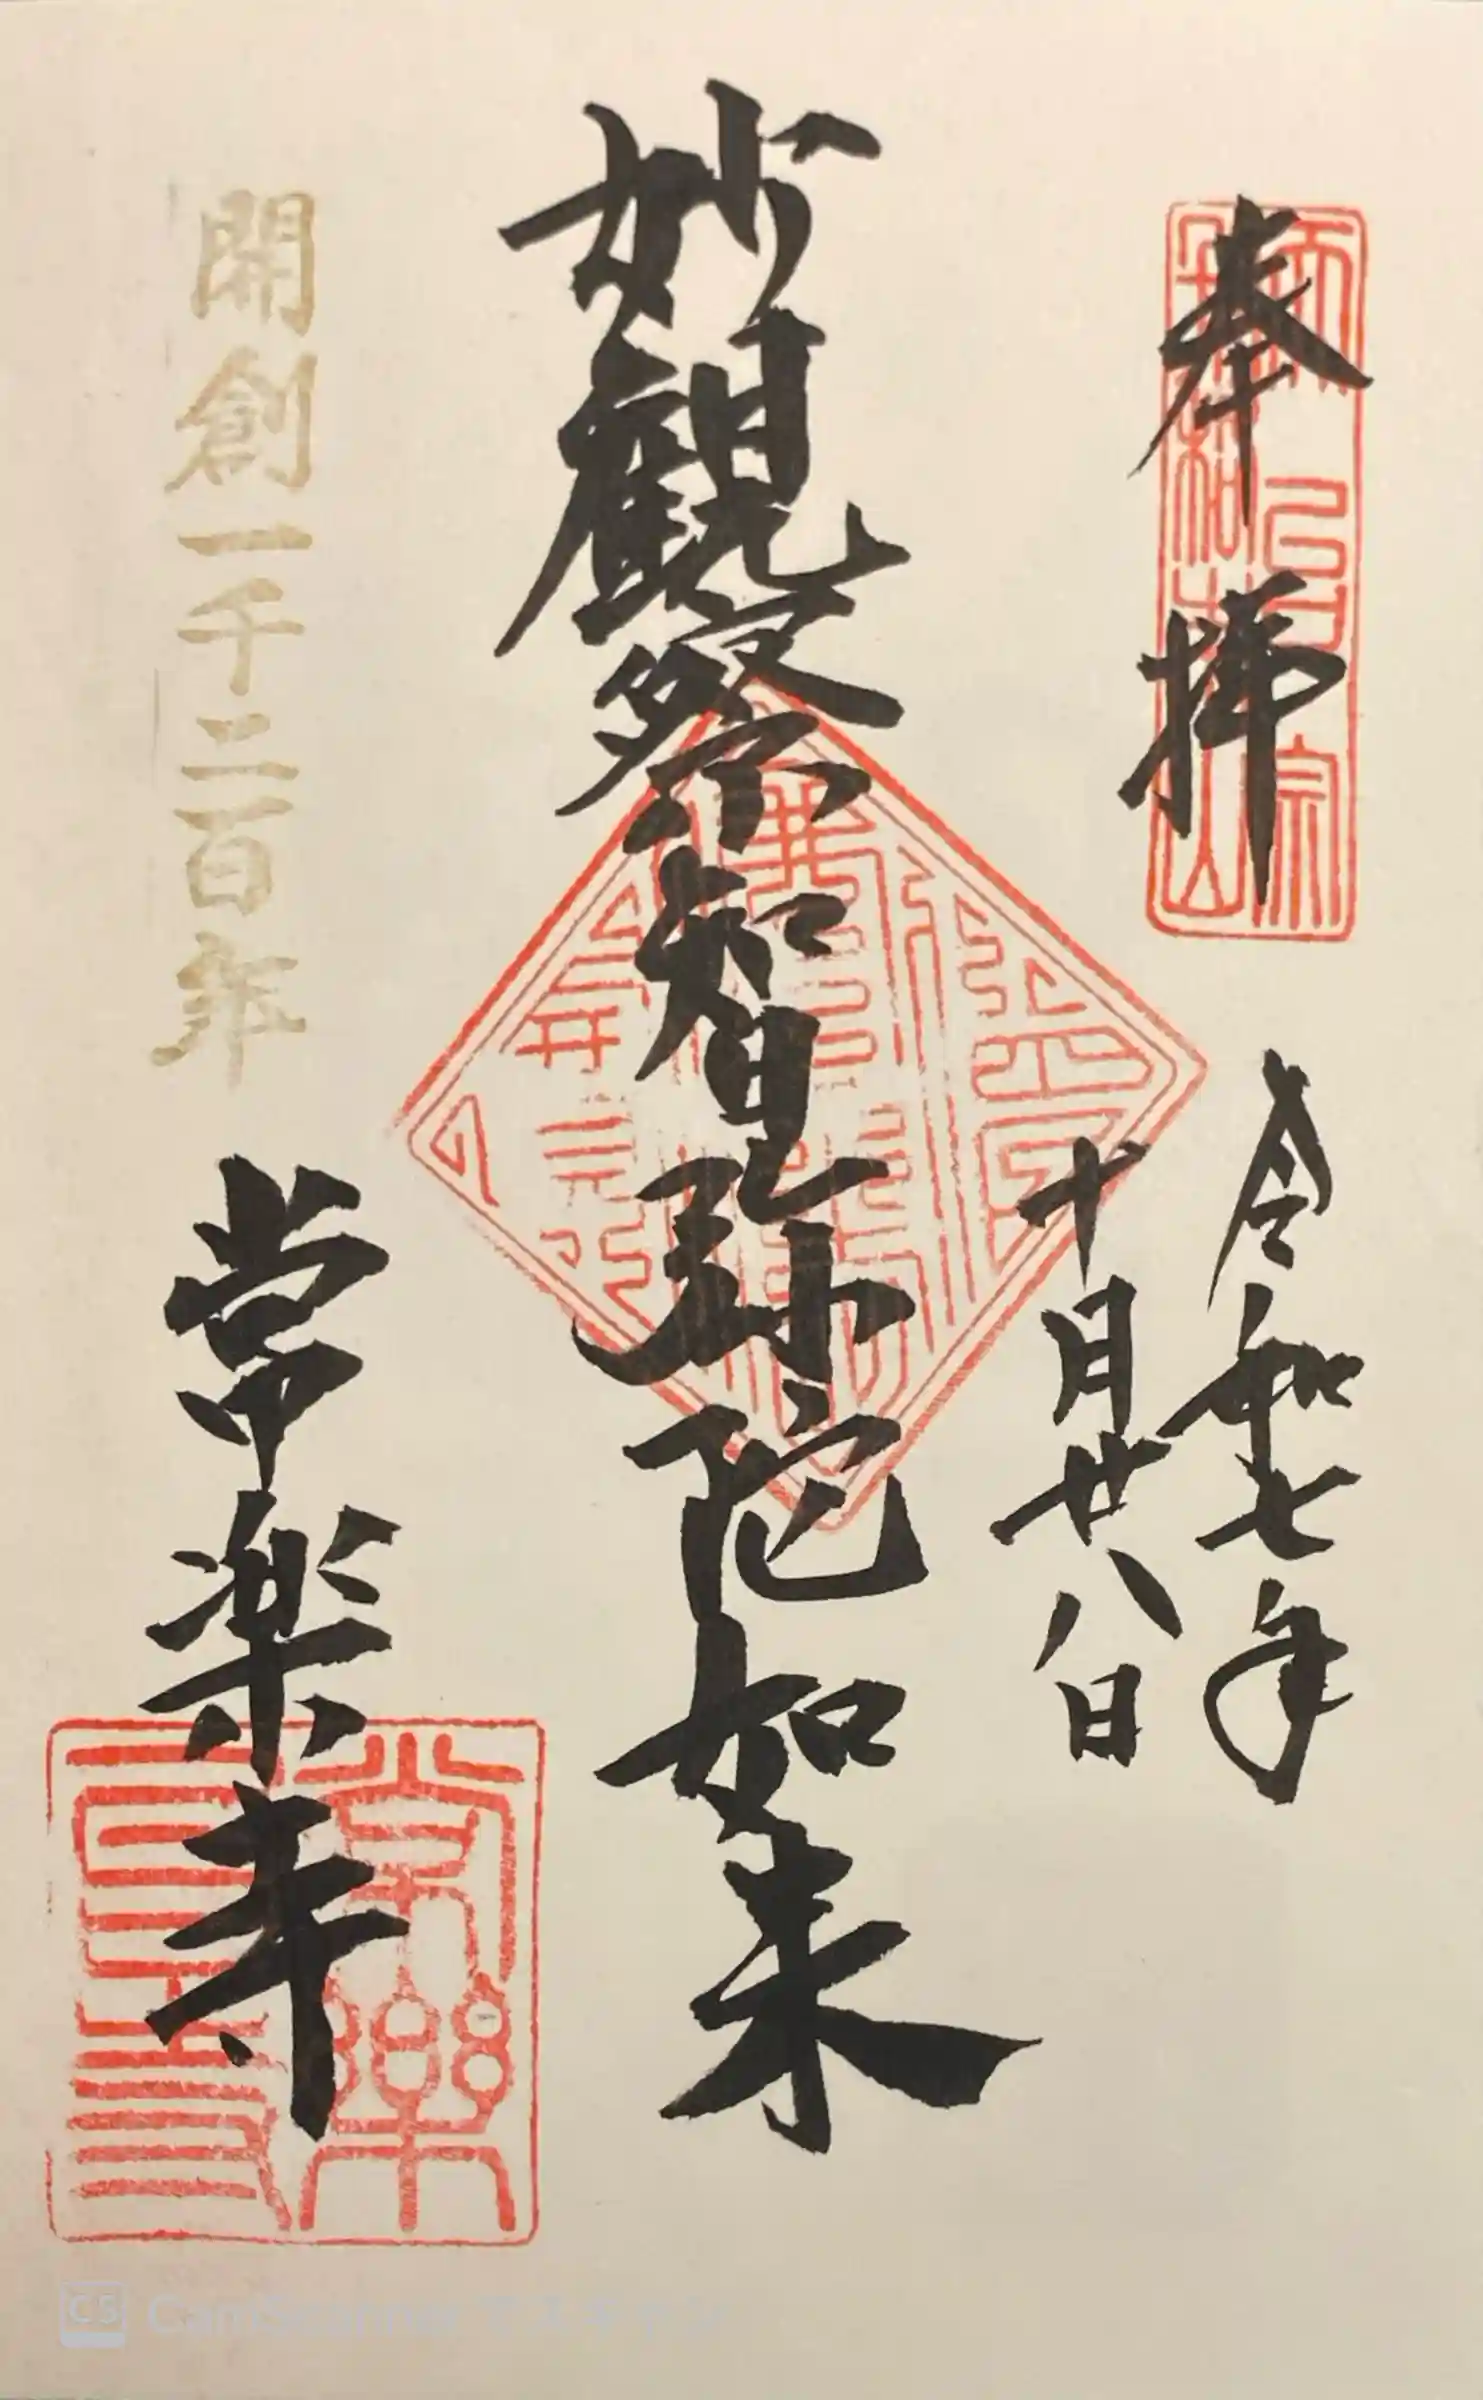 奉拝
令和七年
十月廿八日
妙觀察智弥陀如来
開創一千二百年
常楽寺
常樂
CS CamScanner